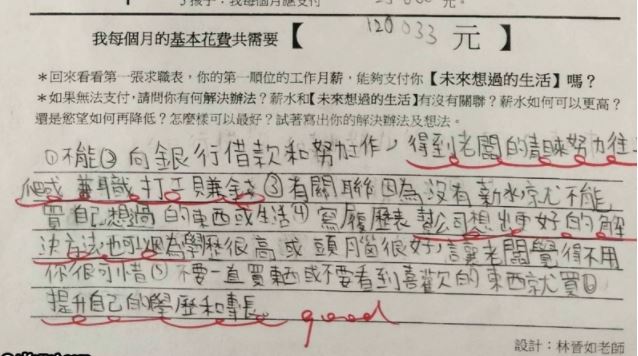 3 孩子：我每個月應支付 元。
我每個月的基本花費共需要【 120033 元 】
＊回來看看第一張求職表，你的第一順位的工作月薪，能夠支付你【未來想過的生活】嗎？
＊如果無法支付，請問你有何解決辦法？薪水和【未來想過的生活】有沒有關聯？薪水如何可以更高？
還是慾望如何再降低？怎麼樣可以最好？試著寫出你的解決辦法及想法。
①不能②向銀行借款和努力工作，得到老闆的青睞努力往上
爬或兼職打工賺金③有關聯因為沒有薪水就不能
買自己想過的東西或生活④寫履歷表幫公司想出更好的解
決方法也可以因為學歷很高或頭腦很好，讓老闆覺得不用
你很可惜⑤不要一直買東西或不要看到喜歡的東西就買⑥
提升自己的學歷和專長。 good
設計：林晉如老師